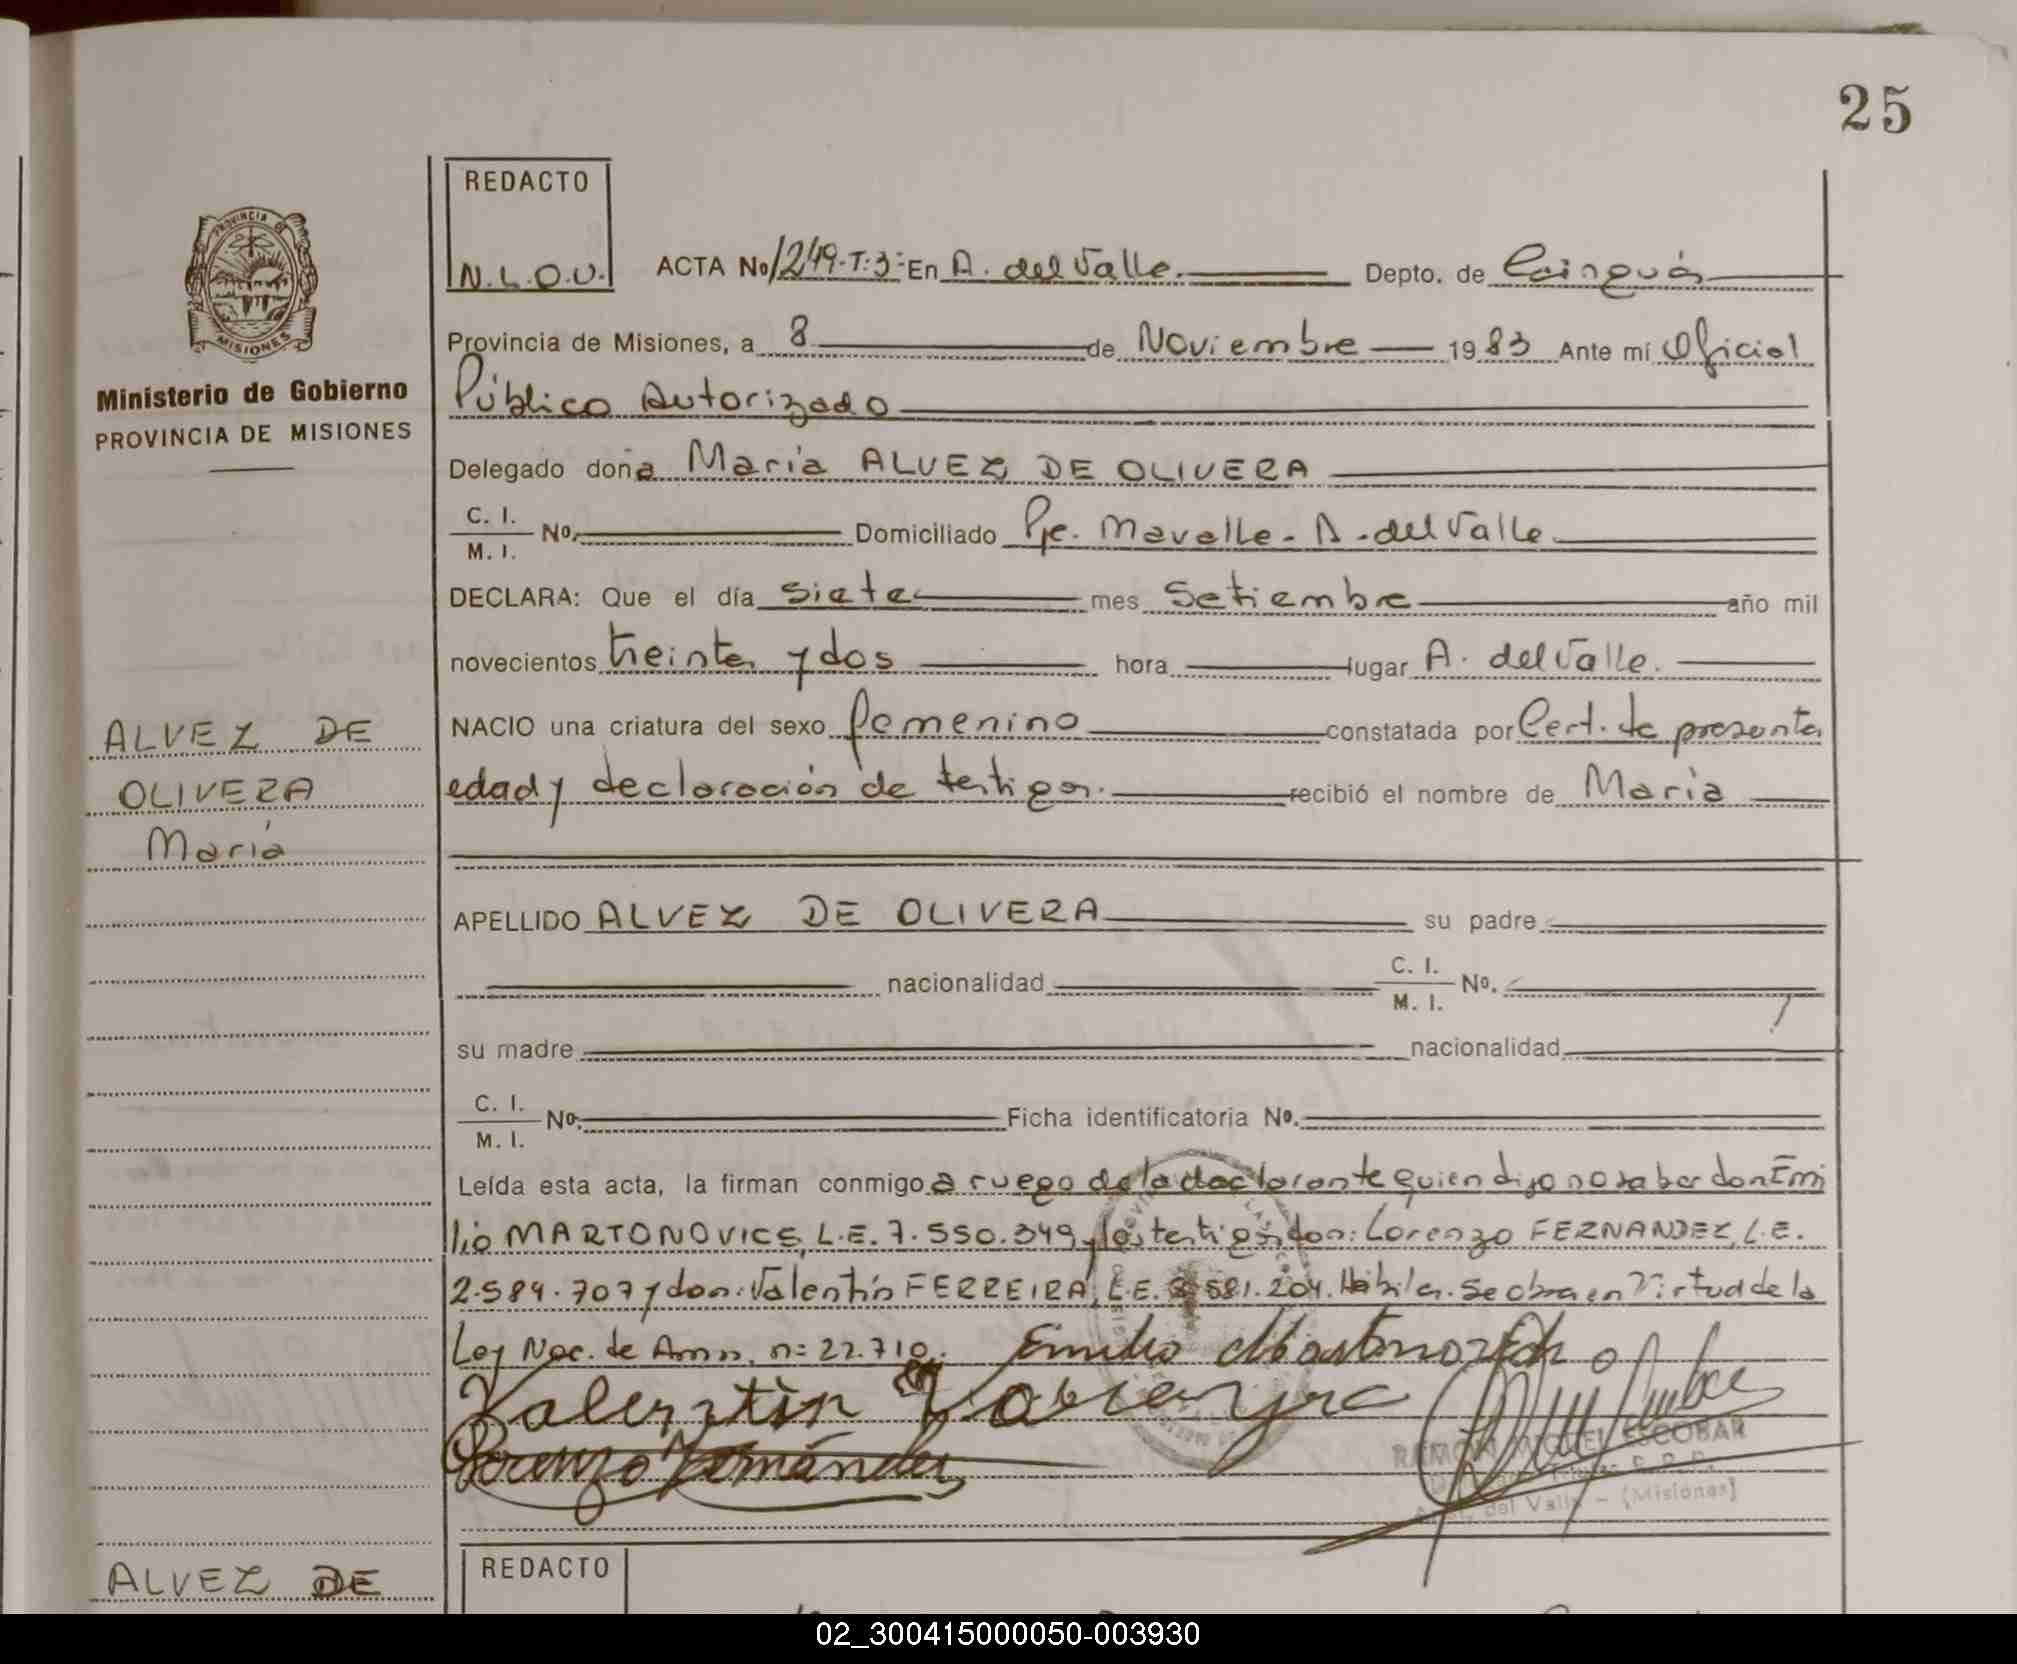 25
REDACTO
N.L.O.U.
ACTA No 1249-T:3- En A. del Valle. Depto. de Cainguás
PROVINCIA DE
MISIONES
Ministerio de Gobierno
PROVINCIA DE MISIONES
Provincia de Misiones, a 8 de Noviembre 1983 Ante mí Oficial
Público Autorizado
Delegado doña María ALVEZ DE OLIVERA
C. I.
M. I. No. Domiciliado Pje. Mavalle - A. del Valle
DECLARA: Que el día siete mes Setiembre año mil
novecientos treinta y dos hora lugar A. del Valle.
NACIO una criatura del sexo femenino constatada por Cert. de presunta
edad y declaración de testigos. recibió el nombre de María
ALVEZ DE
OLIVERA
María
APELLIDO ALVEZ DE OLIVERA su padre
nacionalidad C. I.
M. I. No.
su madre nacionalidad
C. I.
M. I. No. Ficha identificatoria No.
Leída esta acta, la firman conmigo a ruego de la declarante quien dijo no saber don Emi
lio MARTONOVICS, L.E. 7.550.349, los testigos don: Lorenzo FERNANDEZ, L.E.
2.584.707 y don: Valentín FERREIRA, L.E. 581.204. Hábiles. Se obra en Virtud de la
Ley Nac. de Amn. n: 22.710.
Emilio
Valentin
Lorenzo Fernández
RAMON MIGUEL ESCOBAR
del Valle - (Misiones)
REDACTO
ALVEZ DE
02_300415000050-003930